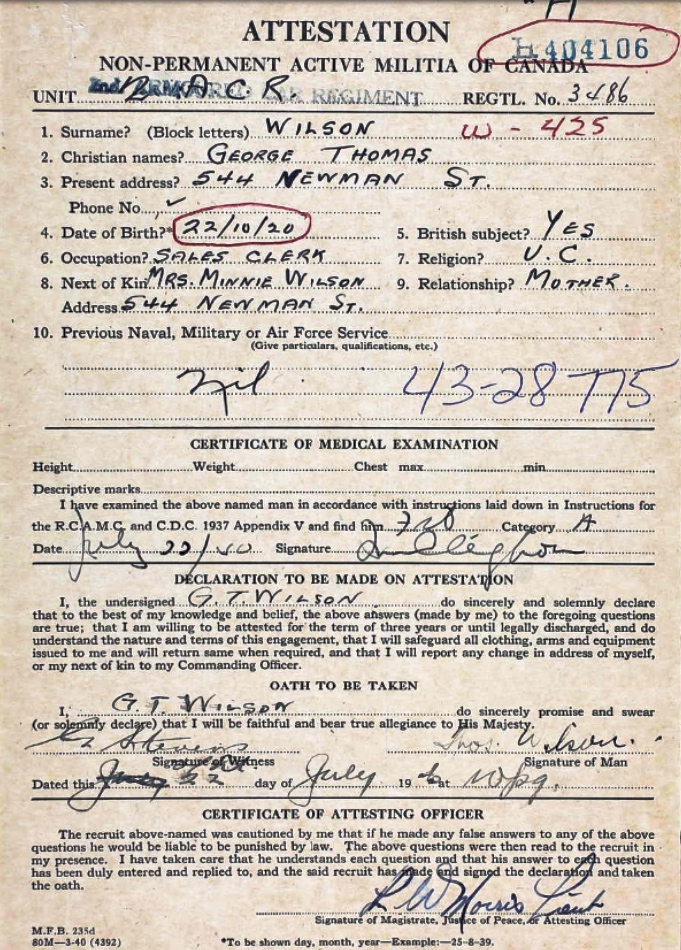 "H
ATTESTATION
H 404106
NON-PERMANENT ACTIVE MILITIA OF CANADA
UNIT 2nd ARMOURED CAR REGIMENT A C R REGTL. No. 3486
1. Surname? (Block letters) WILSON W - 425
2. Christian names? GEORGE THOMAS
3. Present address? 544 NEWMAN ST.
Phone No.
4. Date of Birth?* 22/10/20 5. British subject? YES
6. Occupation? SALES CLERK 7. Religion? U.C.
8. Next of Kin MRS. MINNIE WILSON 9. Relationship? MOTHER.
Address 544 NEWMAN ST.
10. Previous Naval, Military or Air Force Service
(Give particulars, qualifications, etc.)
Nil 43-28 T75
CERTIFICATE OF MEDICAL EXAMINATION
Height Weight Chest max min
Descriptive marks
I have examined the above named man in accordance with instructions laid down in Instructions for
the R.C.A.M.C. and C.D.C. 1937 Appendix V and find him Category A
Date July 22/40 Signature
DECLARATION TO BE MADE ON ATTESTATION
I, the undersigned G.T. WILSON do sincerely and solemnly declare
that to the best of my knowledge and belief, the above answers (made by me) to the foregoing questions
are true; that I am willing to be attested for the term of three years or until legally discharged, and do
understand the nature and terms of this engagement, that I will safeguard all clothing, arms and equipment
issued to me and will return same when required, and that I will report any change in address of myself,
or my next of kin to my Commanding Officer.
OATH TO BE TAKEN
I, G.T. WILSON do sincerely promise and swear
(or solemnly declare) that I will be faithful and bear true allegiance to His Majesty.
Stevens Thos. Wilson.
Signature of Witness Signature of Man
Dated this 22 day of July 19 at Wpg.
CERTIFICATE OF ATTESTING OFFICER
The recruit above-named was cautioned by me that if he made any false answers to any of the above
questions he would be liable to be punished by law. The above questions were then read to the recruit in
my presence. I have taken care that he understands each question and that his answer to each question
has been duly entered and replied to, and the said recruit has made and signed the declaration and taken
the oath.
Morris Lieut
Signature of Magistrate, Justice of Peace, or Attesting Officer
M.F.B. 235d
80M—3-40 (4392) *To be shown day, month, year—Example:—25-8-39.